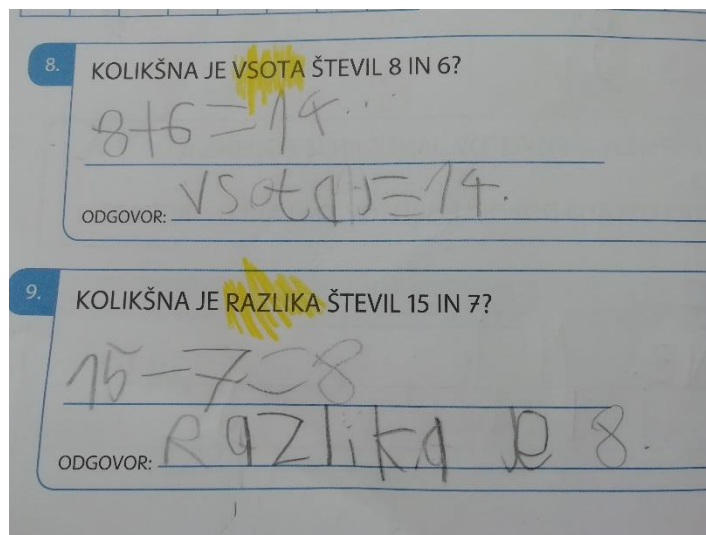 8.
KOLIKŠNA JE VSOTA ŠTEVIL 8 IN 6?
8+6=14
ODGOVOR: VSota je 14.
9.
KOLIKŠNA JE RAZLIKA ŠTEVIL 15 IN 7?
15-7=8
ODGOVOR: Razlika je 8.